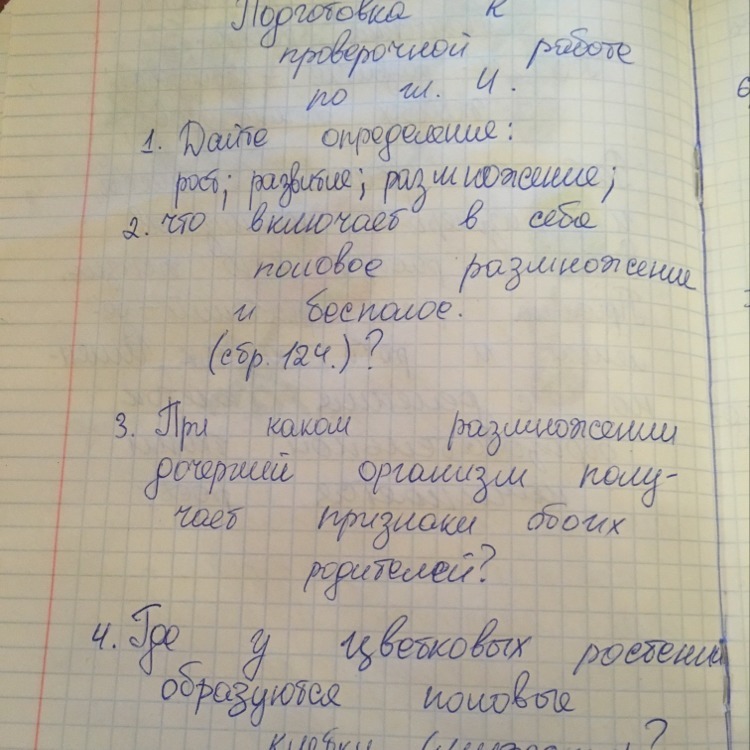 Подготовка к
проверочной работе
по гл. 4.
1. Дайте определение:
рост; развитие; размножение;
2. что включает в себя
половое размножение
и бесполое.
(стр. 124.)?
3. При каком размножении
дочерний организм полу-
чает признаки обоих
родителей?
4. Где у цветковых растений
образуются половые
клетки
6